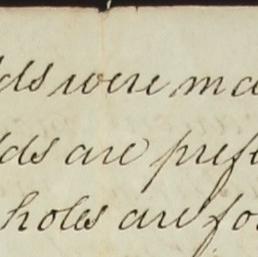 ds were ma
ds are prefe
holes are fo